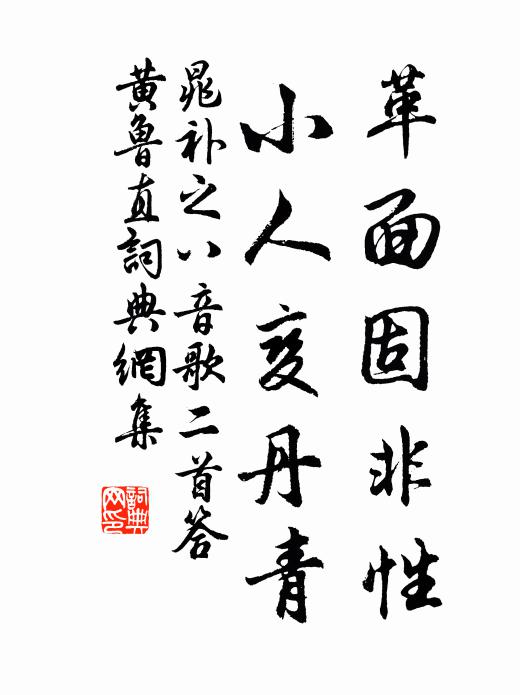 革面固非性
小人变丹青
晁补之八音歌二首答
黄鲁直詞典網集
詞典
网印